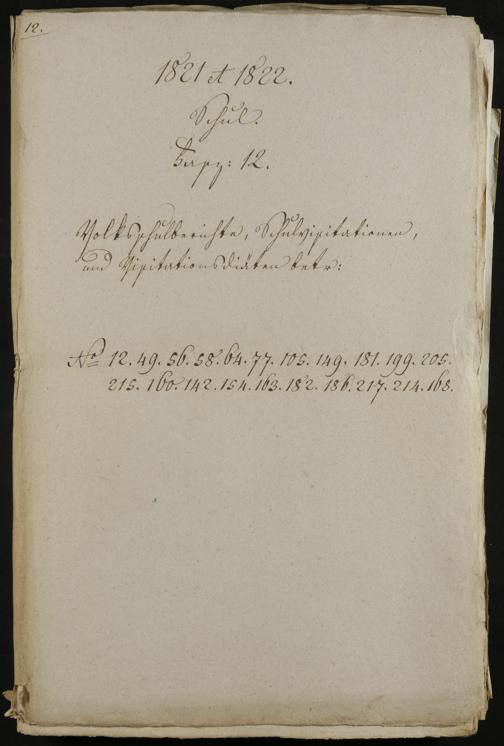 12.
1821 et 1822.
Schul.
Fasz: 12.
Volksschulberichte, Schulvisitationen,
und Visitationsdiäten betr:
No 12. 49. 56. 58. 64. 77. 105. 149. 181. 199. 205.
215. 160. 142. 154. 163. 182. 186. 217. 214. 168.